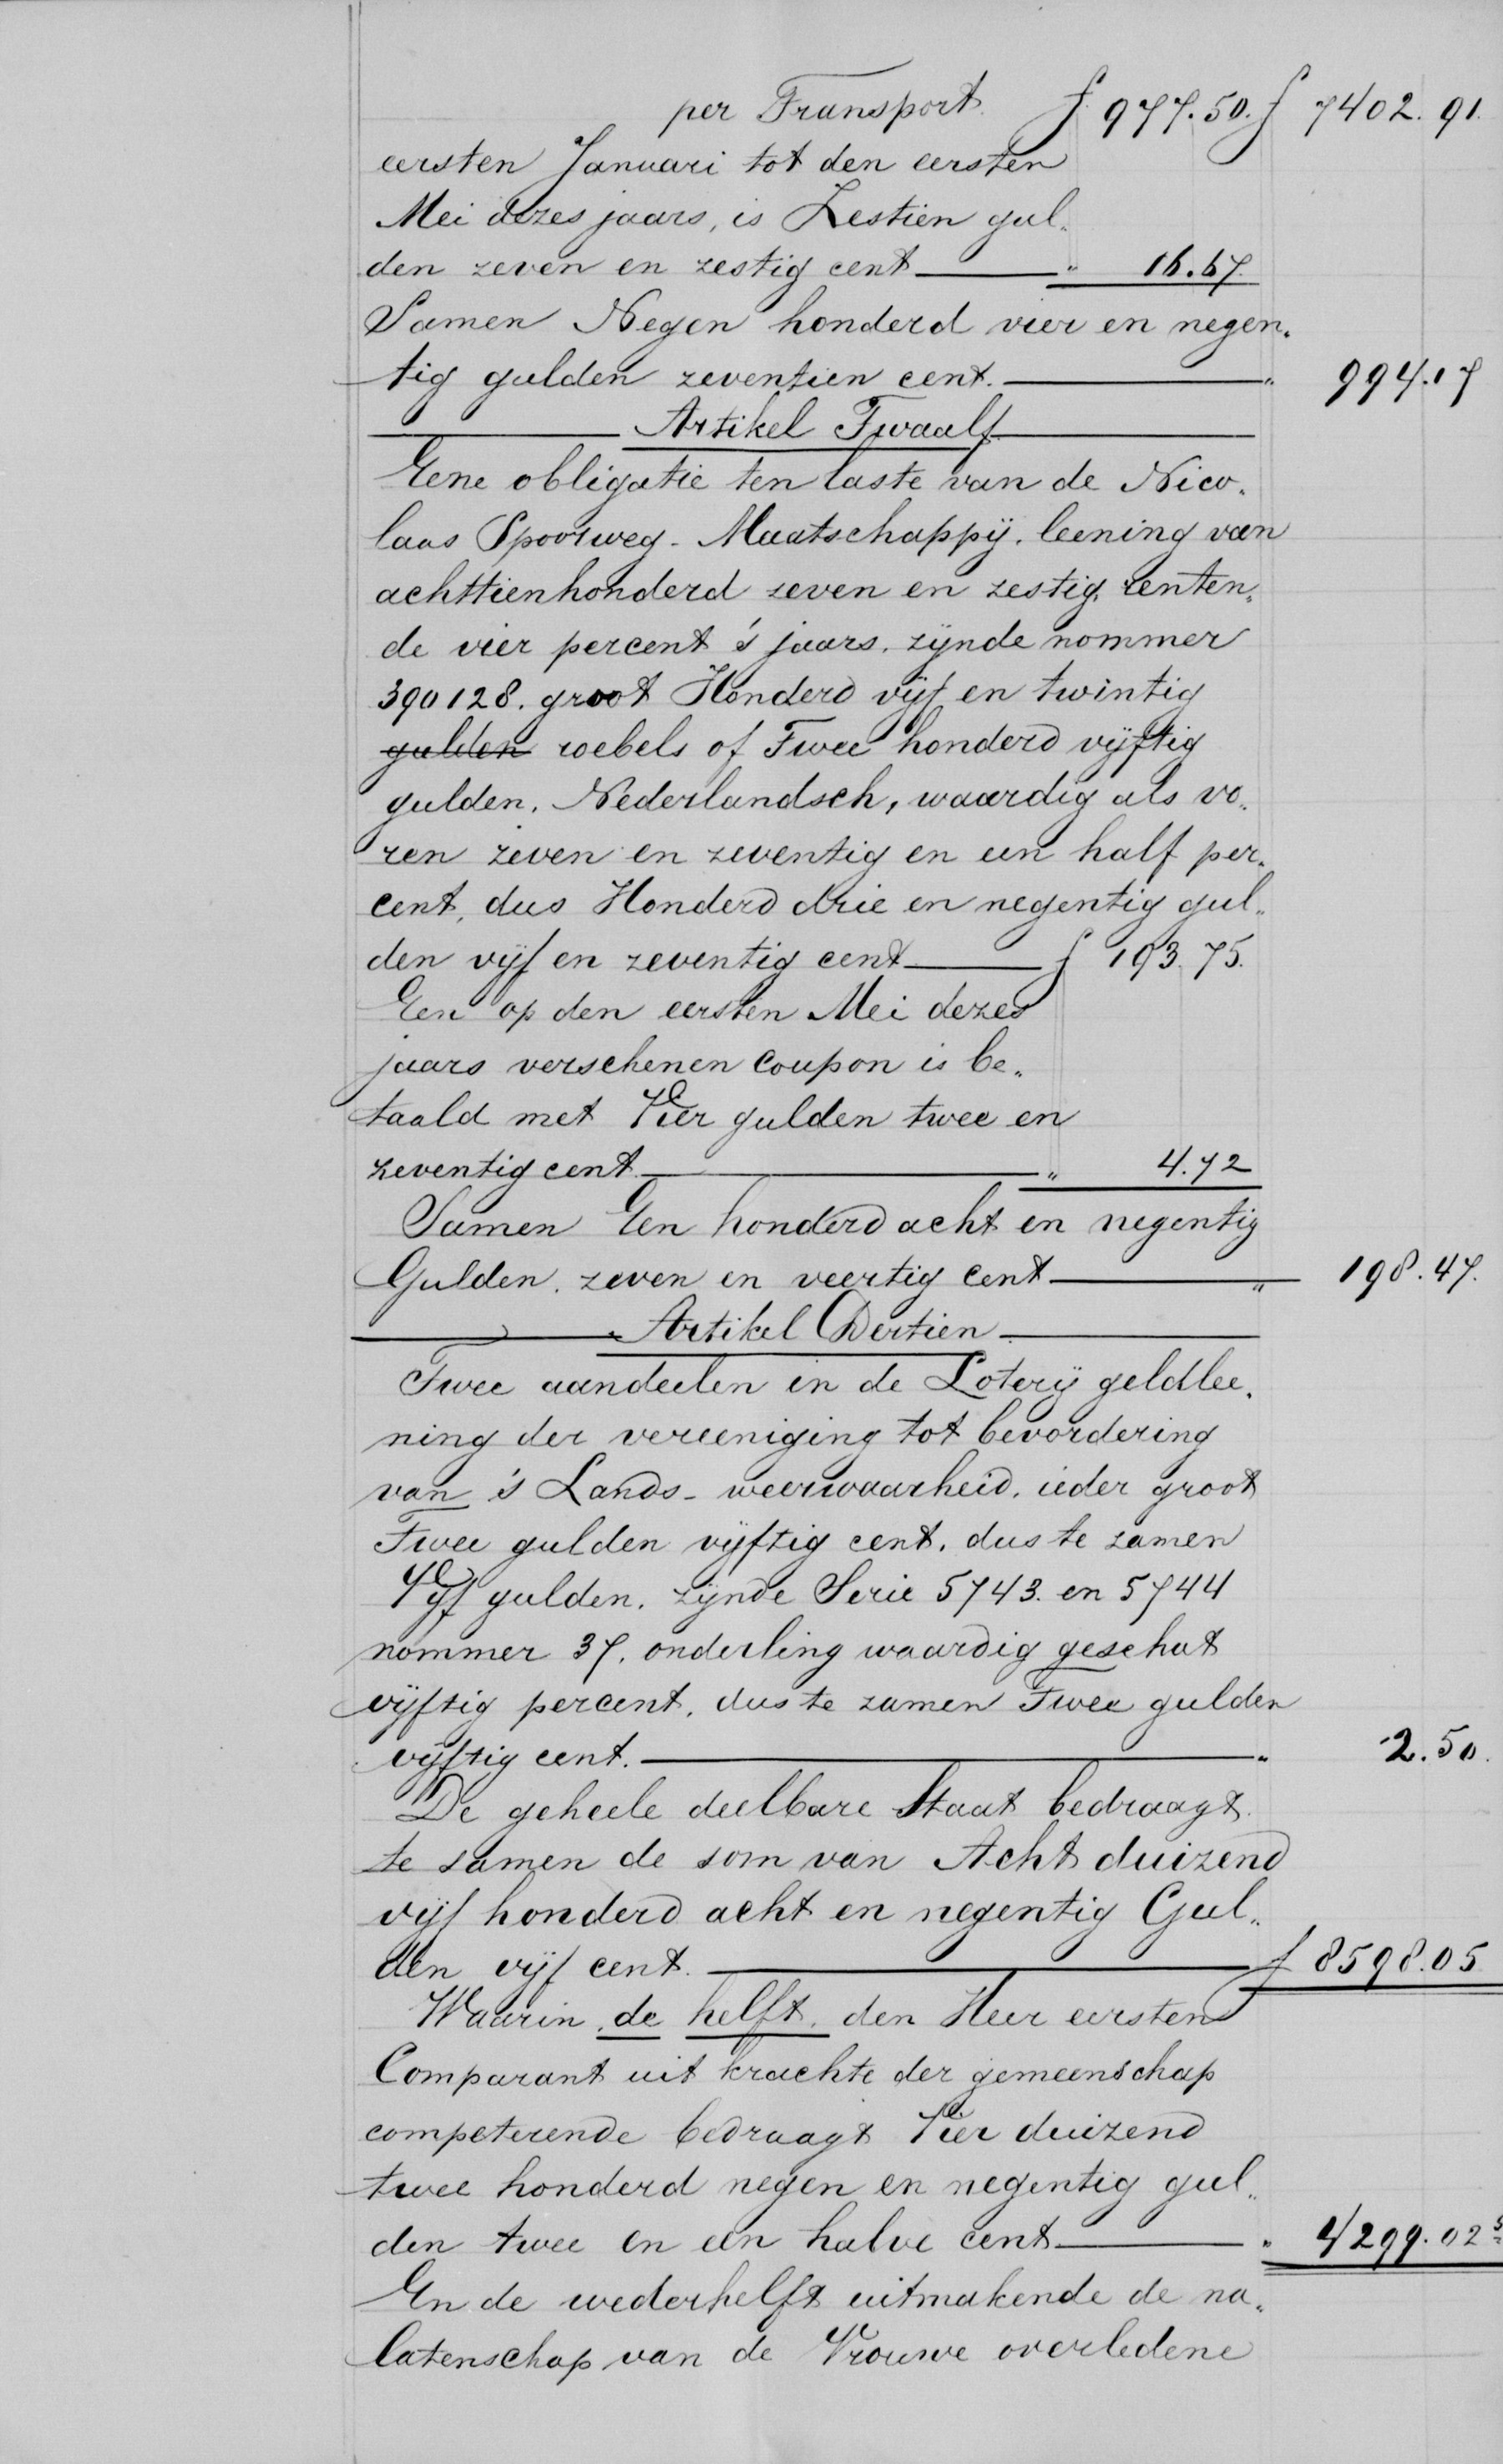 per Transport f 977.50. f 7402.91.
eersten Januari tot den eersten
Mei dezes jaars, is Zestien gul„
den zeven en zestig cent „ 16.67.
Samen Negen honderd vier en negen„
tig gulden zeventien cent. „ 994.17
Artikel Twaalf
Eene obligatie ten laste van de Nico„
laas Spoorweg-Maatschappij, leening van
achttienhonderd zeven en zestig, renten„
de vier percent 's jaars, zijnde nommer
390128. groot Honderd vijf en twintig
gulden roebels of Twee honderd vijftig
gulden, Nederlandsch, waardig als vo„
ren zeven en zeventig en een half per„
cent, dus Honderd drie en negentig gul„
den vijf en zeventig cent f 193.75.
Een op den eersten Mei dezes
jaars verschenen coupon is be„
taald met Vier gulden twee en
zeventig cent „ 4.72
Samen Een honderd acht en negentig
Gulden, zeven en veertig cent „ 198.47.
Artikel Dertien
Twee aandeelen in de Loterij geldlee„
ning der vereeniging tot bevordering
van 's Lands-weerwaarheid, ieder groot
Twee gulden vijftig cent, dus te zamen
Vijf gulden, zijnde Serie 5743. en 5744
nommer 37, onderling waardig geschat
vijftig percent, dus te zamen Twee gulden
vijftig cent. „ 2.50.
De geheele deelbare Staat bedraagt
te samen de som van Acht duizend
vijf honderd acht en negentig Gul„
den vijf cent. f 8598.05
Waarin de helft, den Heer eersten
Comparant uit krachte der gemeenschap
competerende bedraagt Vier duizend
twee honderd negen en negentig gul„
den twee en een halve cent „ 4299.02⁵
En de wederhelft uitmakende de na„
latenschap van de Vrouwe overledene